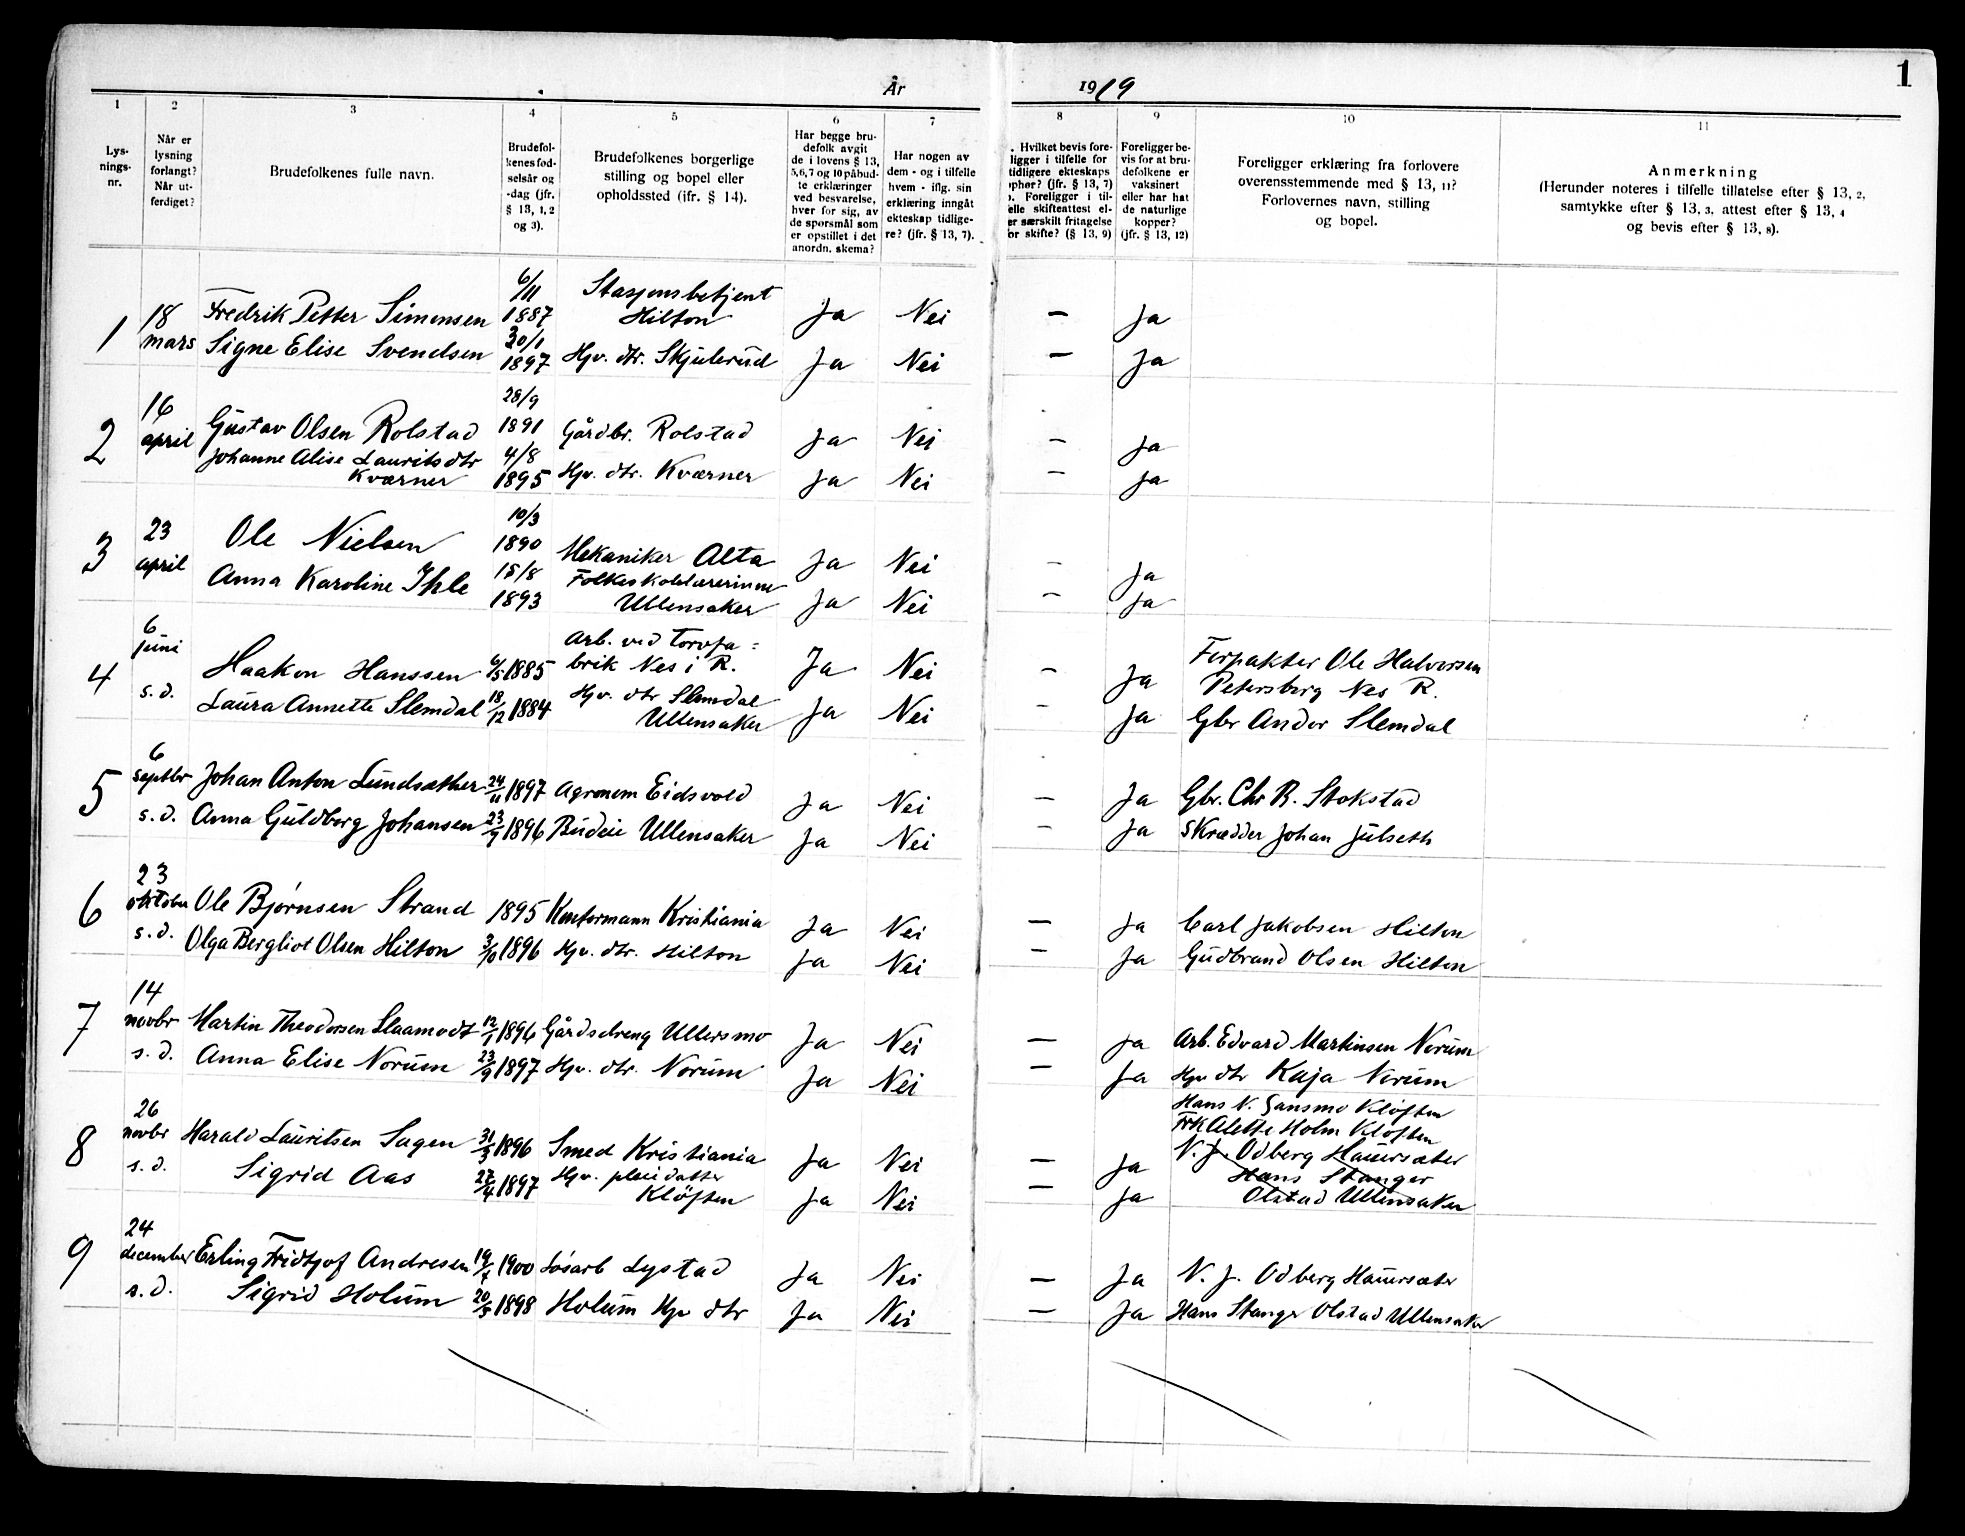 1
År 1919
1 2 3 4 5 6 7 8 9 10 11
Lys-
nings-
nr.
Når er
lysning
forlangt?
Når ut-
ferdiget?
Brudefolkenes fulle navn.
Brudefol-
kenes fød-
selsår og
-dag (jfr.
§ 13, 1, 2
og 3).
Brudefolkenes borgerlige
stilling og bopel eller
opholdssted (ifr. § 14).
Har begge bru-
defolk avgit
de i lovens § 13,
5,6, 7 og 10 påbud-
te erklæringer
ved besvarelse,
hver for sig, av
de spørsmål som
er opstillet i det
anordn. skema?
Har nogen av
dem - og i tilfelle
hvem - iflg. sin
erklæring inngått
ekteskap tidlige-
re? (jfr. § 13, 7).
. Hvilket bevis fore-
ligger i tilfelle for
tidligere ekteskaps
ophør? (jfr. § 13, 7)
. Foreligger i til-
elle skifteattest el-
er særskilt fritagelse
or skifte? (§ 13, 9)
Foreligger be-
vis for at bru-
defolkene er
vaksinert
eller har hat
de naturlige
kopper?
(jfr. § 13, 12)
Foreligger erklæring fra forlovere
overensstemmende med § 13, 11?
Forlovernes navn, stilling
og bopel.
Anmerkning
(Herunder noteres i tilfelle tillatelse efter § 13, 2,
samtykke efter § 13, 3, attest efter § 13, 4
og bevis efter § 13, 8).
1 18 mars Fredrik Petter Simensen 6/11 1887 Stasjonsbetjent Hilton Ja Nei – Ja
Signe Elise Svendsen 30/1 1897 Hjv. dtr. Skjulerud Ja Nei – Ja
2 16 april Gustav Olsen Rolstad 28/9 1891 Gårdbr. Rolstad Ja Nei – Ja
Johanne Alise Lauritsdtr Kværner 4/8 1895 Hjv. dtr. Kværner Ja Nei – Ja
3 23 april Ole Nielsen 10/3 1890 Mekaniker Alta Ja Nei – Ja
Anna Karoline Ihle 15/8 1893 Folkeskolelærerinne Ullensaker Ja Nei – Ja
4 6 juni Haakon Hanssen 6/5 1885 Arb. ved Torvfa= brik Nes i R. Ja Nei – Ja Forpakter Ole Halvorsen Petersberg Nes R.
s. d. Laura Annette Slemdal 18/12 1884 Hjv. dtr Slemdal Ullensaker Ja Nei – Ja Gbr Andor Slemdal
5 6 septbr Johan Anton Lundsæther 24/11 1897 Agronom Eidsvold Ja Nei – Ja Gbr. Chr R. Stokstad
s. d. Anna Guldborg Johansen 23/9 1896 Budeie Ullensaker Ja Nei – Ja Skrædder Johan Julseth
6 23 oktober Ole Bjørnsen Strand 1895 Kontormann Kristiania Ja Nei – Ja Carl Jakobsen Hilton
s. d. Olga Bergliot Olsen Hilton 3/10 1896 Hjv. dtr. Hilton Ja Nei – Ja Gudbrand Olsen Hilton
7 14 novbr Martin Theodorsen Slaamodt 12/1 1896 Gårdsdreng Ullersmo Ja Nei – Ja Arb. Edvard Martinsen Norum
s. d. Anna Elise Norum 23/9 1897 Hjv. dtr. Norum Ja Nei – Ja Hjv dtr Kaja Norum
8 26 novbr Harald Lauritsen Sagen 31/3 1896 Smed Kristiania Ja Nei – Ja Hans N. Jansmo Kløften
Frk Alette Holm Kløften
s. d. Sigrid Aas 27/4 1897 Hjv. pleiedatter Kløften Ja Nei – Ja N. J. Odberg Hauersæter
Hans Stanger
Olstad Ullensaker
9 24 december Erling Fridtjof Andresen 19/7 1900 Løsarb Lystad Ja Nei – Ja N. J. Odberg Hauersæter
s. d. Sigrid Holum 20/5 1898 Holum Hjv dtr Ja Nei – Ja Hans Stanger Olstad Ullensaker